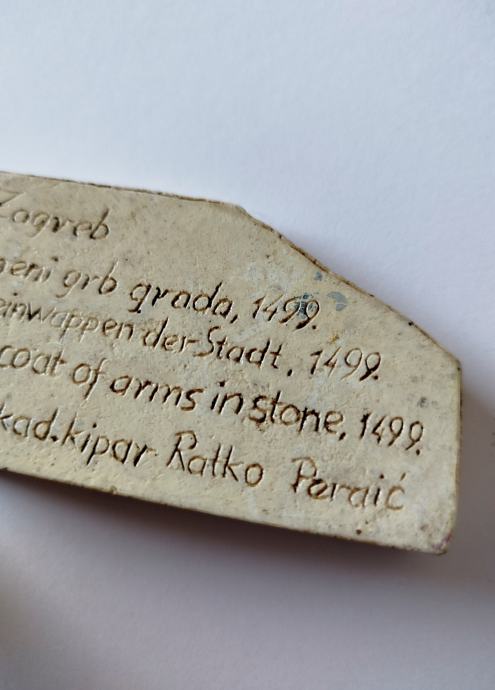 Zagreb
meni grb grada, 1499.
einwappen der Stadt, 1499.
coat of arms in stone, 1499.
kad.kipar Ratko Peraić